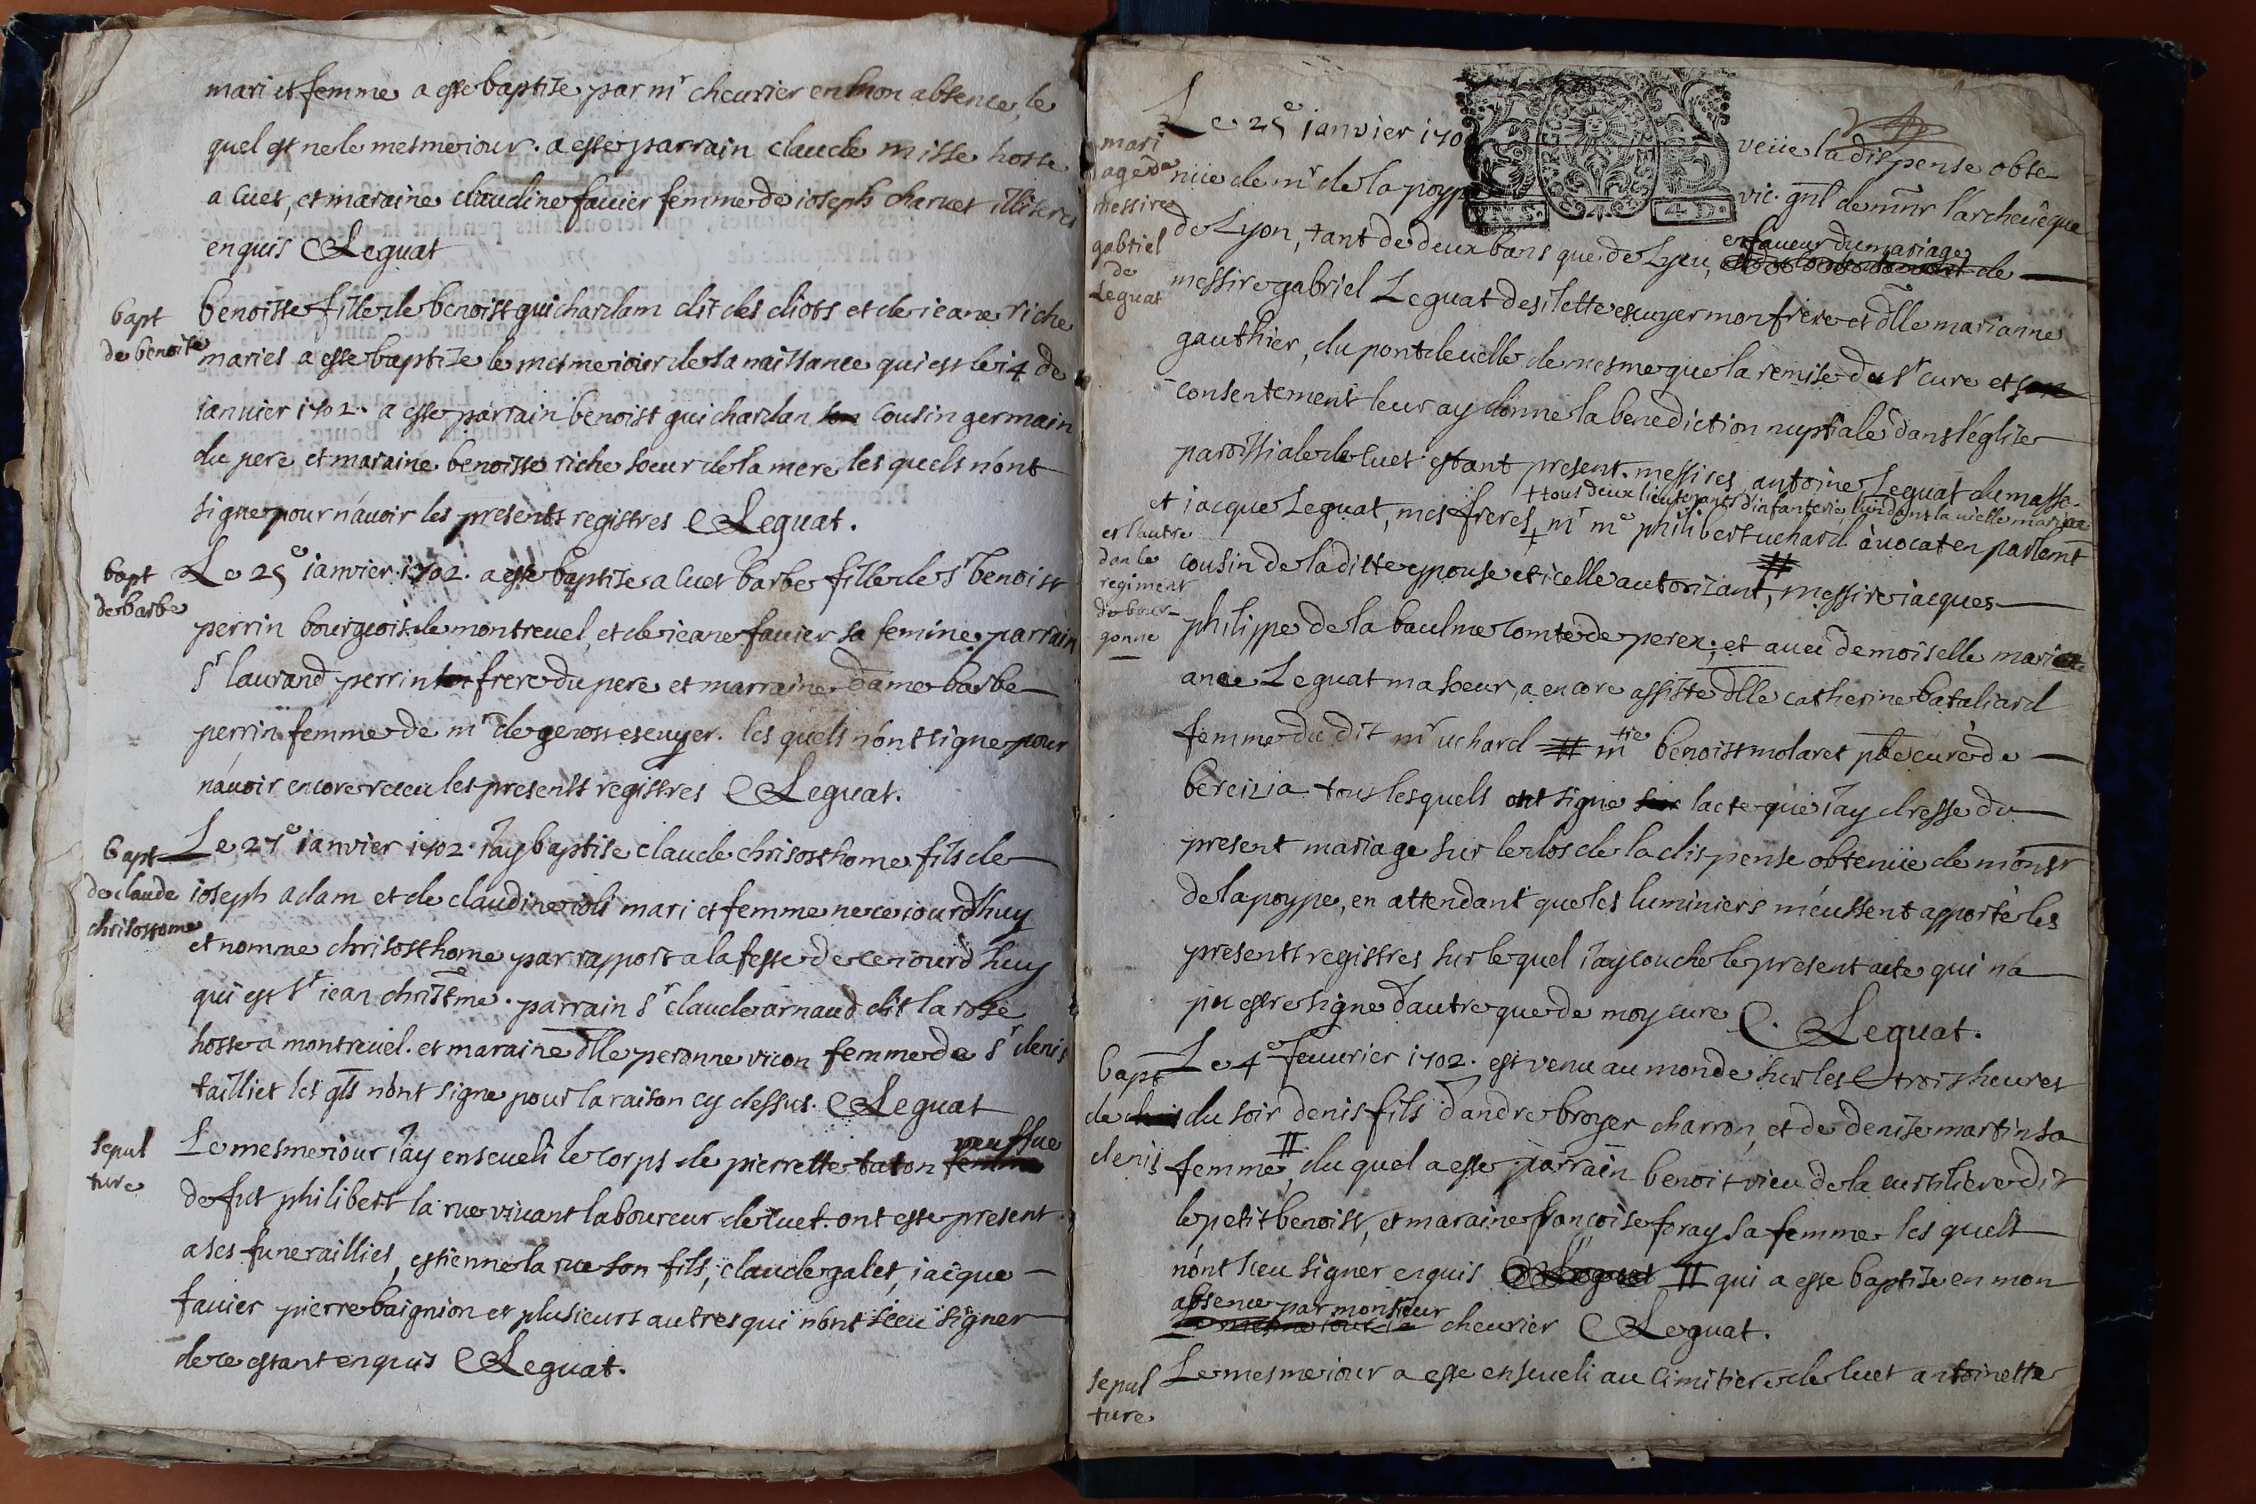 mari et femme a esté baptisé par mr cheurier en mon absence, le
quel est né le mesme iour. a esté parrain claude misse hoste
a cuet, et maraine claudine fauier femme de ioseph charuet illiteres
enquis CLeguat
bapt
de benoite
benoiste fille de benoist guichardam dit des diots et de ieane riche
mariés a esté baptizé le mesme iour de sa naissance qui est le 14 de
ianuier 1702. a esté parrain benoist guichardan son cousin germain
du pere et maraine benoiste riche soeur de la mere les quels n'ont
signé pour n'auoir les presents registres CLeguat.
bapt
de barbe
Le 25e ianvier 1702. a esté baptizé a Cuet barbe fille de sr benoist
perrin bourgeois de montreuel, et de ieane fauier sa femme, parrain
sr laurand perrin son frere du pere et marraine dame barbe
perrin femme de mr de geross escuyer. les quels n'ont signé pour
n'auoir encore receu les presents registres CLeguat.
bapt
de claude
chrisostome
Le 27e ianvier 1702. i'ay baptisé claude chrisosthome fils de
ioseph adam et de claudine ioli mari et femme né ce iourd'huy
et nommé chrisosthome par rapport a la feste de ce iourd'huy
qui est st iean chrisme. parrain sr claude arnaud dit la rose
hoste a montreuel. et maraine dlle peronne vicon femme de sr denis
tailliet les qls n'ont signé pour la raison cy dessus. CLeguat
sepul
ture
Le mesme iour i'ay enseueli le corps de pierrette taton femme veusfue
de fut philibert la rue viuant laboureur de cuet. ont esté present
a ses funerailles, estienne la rue son fils, claude galet, iacque
fauier pierre baignion et plusieurs autres qui n'ont sceu signer
de ce estant enquis CLeguat.
mari
age de
messire
gabriel
de
Leguat
Le 25e ianvier 170 veüe la dispense obte
nüe de mr de la poype vic. gnl de mnr l'archeuêque
de Lyon, tant de deux bans que de Lyeu, en faueur du mariage de
messire gabriel Leguat desilette escuyer mon frere et dlle marianne
gauthier, du pont de uelle de mesme que la remise du sr curé et son
consentement leur ay donné la benediction nuptiale dans l'église
paroissiale de cuet estant present. messires antoine Leguat du masse
+ tous deux lieutenants d'infanterie, l'un dans la uielle marine
et iacque Leguat, mes freres + mr me philibert uchard auocat en parlemt
et l'autre
dan le
regiment
de bour-
gonne
cousin de la ditte epouse et icelle autorizant, # messire iacques
philippe de la baulme comte de perex, et auec demoiselle mari
anne Leguat ma soeur, a encore assisté dlle catherine bataliard
femme du dit mr uchard # mre benoist molaret pbe curé de
bereizia tous lesquels ont signé sur lacte que i'ay dressé du
present mariage sur le dos de la dispense obtenüe de monsr
de la poype, en attendant que les luminiers m'eussent apporté les
presents registres sur lequel i'ay couché le present acte qui n'a
pu estre signé d'autre que de moy curé C. Leguat.
bapt
de
denis
Le 4e feuurier 1702. est venu au monde sur les trois heures
du soir denis fils d'andre broyer charron, et de denise martin sa
femme II, du quel a esté parrain benoit vieu de la curtiliere dit
le petit benoist, et maraine françoise feray sa femme les quels
n'ont sceu signer enquis CLeguat II qui a esté baptizé en mon
absence par monsieur
le mesme iour cheurier CLeguat.
sepul
ture
Le mesme iour a esté enseueli au cimitiere de cuet antoinette